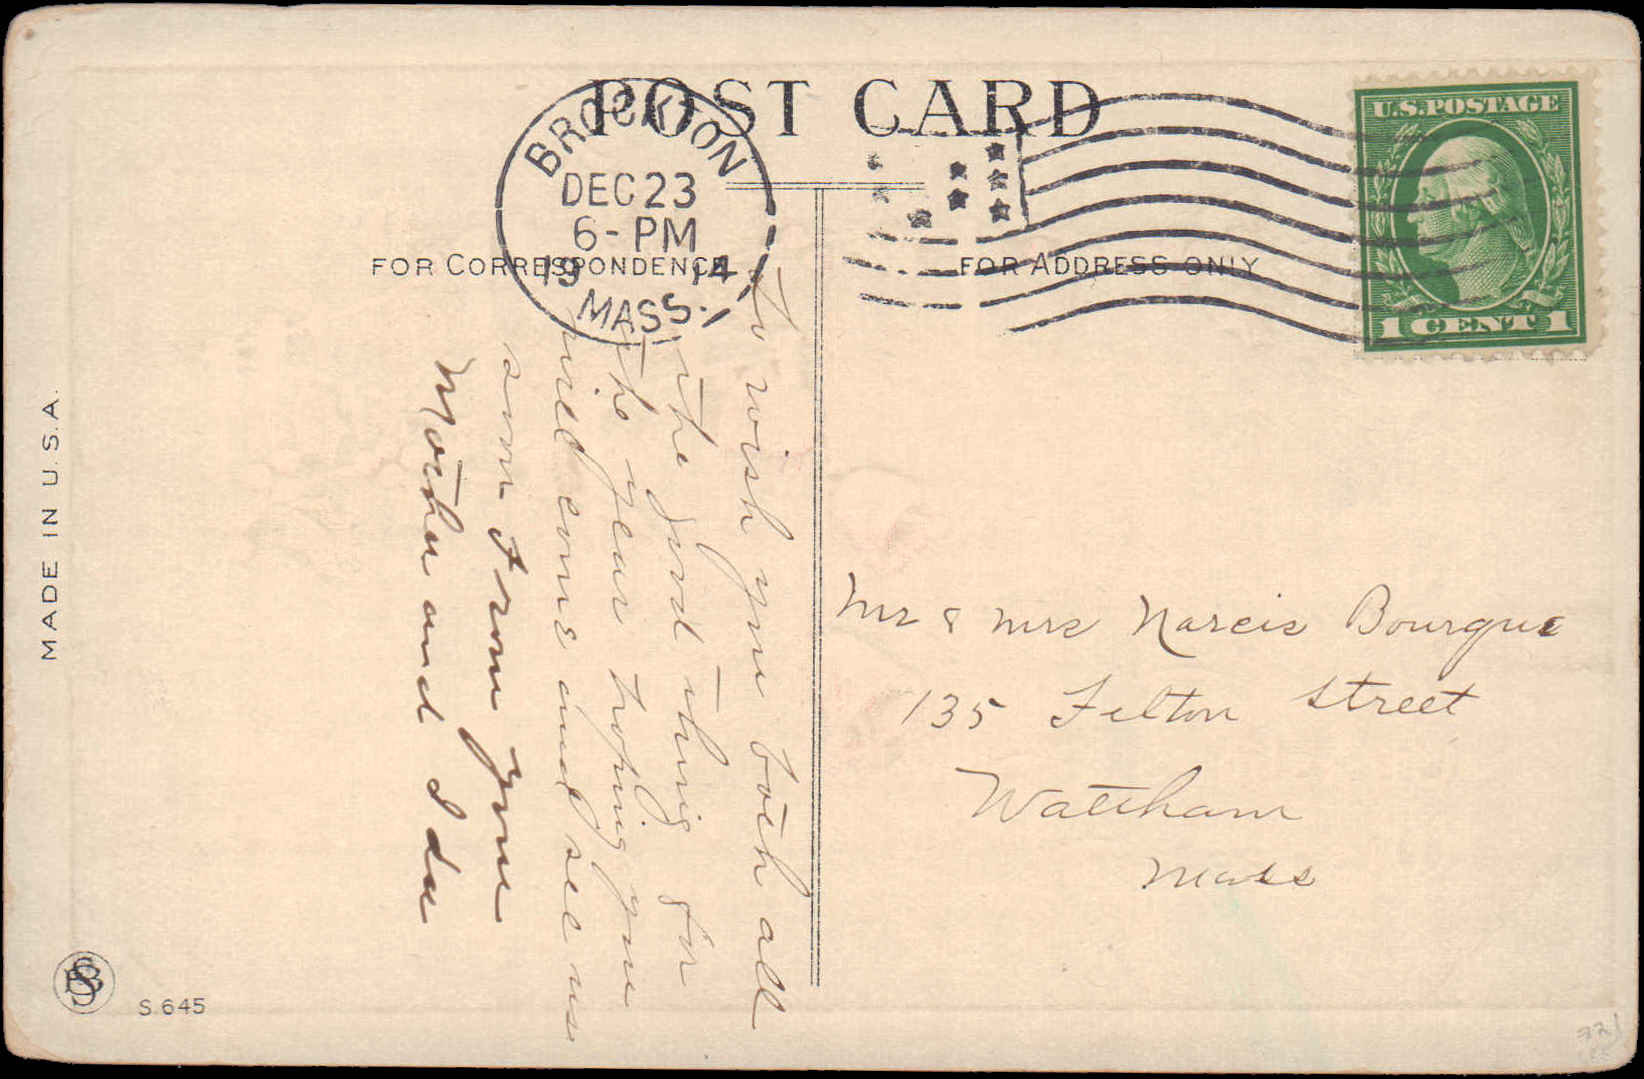 POST CARD
BROCKTON
DEC 23
6-PM
1914
MASS.
U.S. POSTAGE
1 CENT 1
FOR CORRESPONDENCE
FOR ADDRESS ONLY
to wish you both all
the good thing for
the year hoping you
will come and see us
soon From your
Mother and Ida
Mr & Mrs Narcis Bourque
135 Felton Street
Waltham
Mass
MADE IN U.S.A.
S. 645